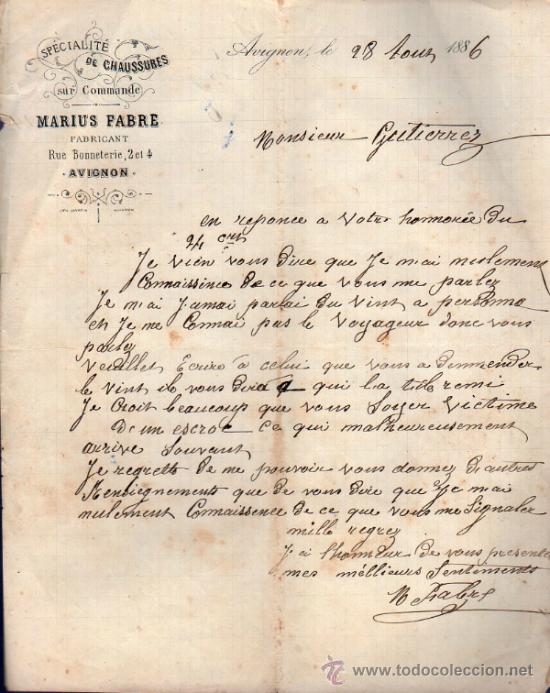 SPÉCIALITÉ
DE CHAUSSURES
sur Commande
MARIUS FABRE
FABRICANT
Rue Bonneterie, 2 et 4
AVIGNON
Avignon, le 28 Aout 1886
Monsieur Gutierrez
en reponce a votre honnorée du
24 crt
Je vien vous dire que Je m'ai nulement
Connaissence de ce que vous me parlez
Je m'ai Jamai parlai du vint a personne
et Je me Connai pas le voyageur donc vous
parlez
veuillet Ecrire à celui que vous a demmender
le vint il vous dira a qui la
Je Croit beaucoup que vous Soyer victime
D'un escroc ce qui malheureusement
arrive Souvant
Je regrette de me pouvoir vous donnez d'autres
Renseignements que de vous dire que Je m'ai
nulement Connaissence de ce que vous me Signaler
mille regrez
J'ai l'honneur de vous presente
mes mellieurs Sentiments
M Fabre
www.todocoleccion.net